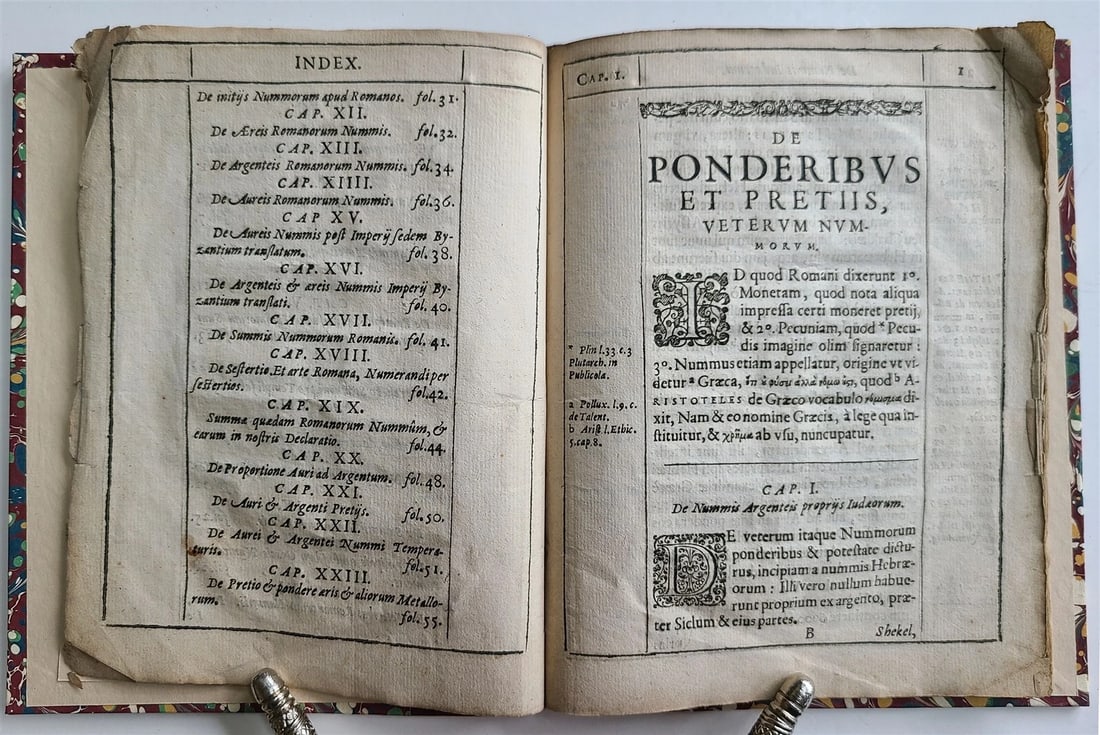 INDEX.
De initijs Nummorum apud Romanos. fol.31.
CAP. XII.
De Æreis Romanorum Nummis. fol.32.
CAP. XIII.
De Argenteis Romanorum Nummis. fol.34.
CAP. XIIII.
De Aureis Romanorum Nummis. fol.36.
CAP XV.
De Aureis Nummis post Imperij sedem By-
zantium translatum. fol.38.
CAP. XVI.
De Argenteis & æreis Nummis Imperij By-
zantium translati. fol.40.
CAP. XVII.
De Summis Nummorum Romanis. fol.41.
CAP. XVIII.
De Sestertio, Et arte Romana, Numerandi per
sestertios. fol.42.
CAP. XIX.
Summæ quædam Romanorum Nummûm, &
earum in nostris Declaratio. fol.44.
CAP. XX.
De Proportione Auri ad Argentum. fol.48.
CAP. XXI.
De Auri & Argenti Pretijs. fol.50.
CAP. XXII.
De Aurei & Argentei Nummi Tempera-
turis. fol.51.
CAP. XXIII.
De Pretio & pondere æris & aliorum Metallo-
rum. fol.55.
CAP. I. 1
DE
PONDERIBVS
ET PRETIIS,
VETERVM NVM-
MORVM.
ID quod Romani dixerunt 1º.
Monetam, quod nota aliqua
impressa certi moneret pretij,
& 2º. Pecuniam, quod * Pecu-
dis imagine olim signaretur:
3º. Nummus etiam appellatur, origine vt vi-
detur a Græca, quod b A-
RISTOTELES de Græco vocabulo νόμισμα di-
xit, Nam & eo nomine Græcis, à lege qua in-
stituitur, & χρῆμα ab vsu, nuncupatur.
* Plin l.33 c.3
Plutarch. in
Publicola.
a Pollux. l.9. c.
de Talent.
b Arist. l. Ethic.
5. cap.8.
CAP. I.
De Nummis Argenteis proprijs Iudæorum.
DE veterum itaque Nummorum
ponderibus & potestate dictu-
rus, incipiam a nummis Hebræ-
orum: Illi vero nullum habue-
runt proprium ex argento, præ-
ter Siclum & eius partes.
B Shekel,